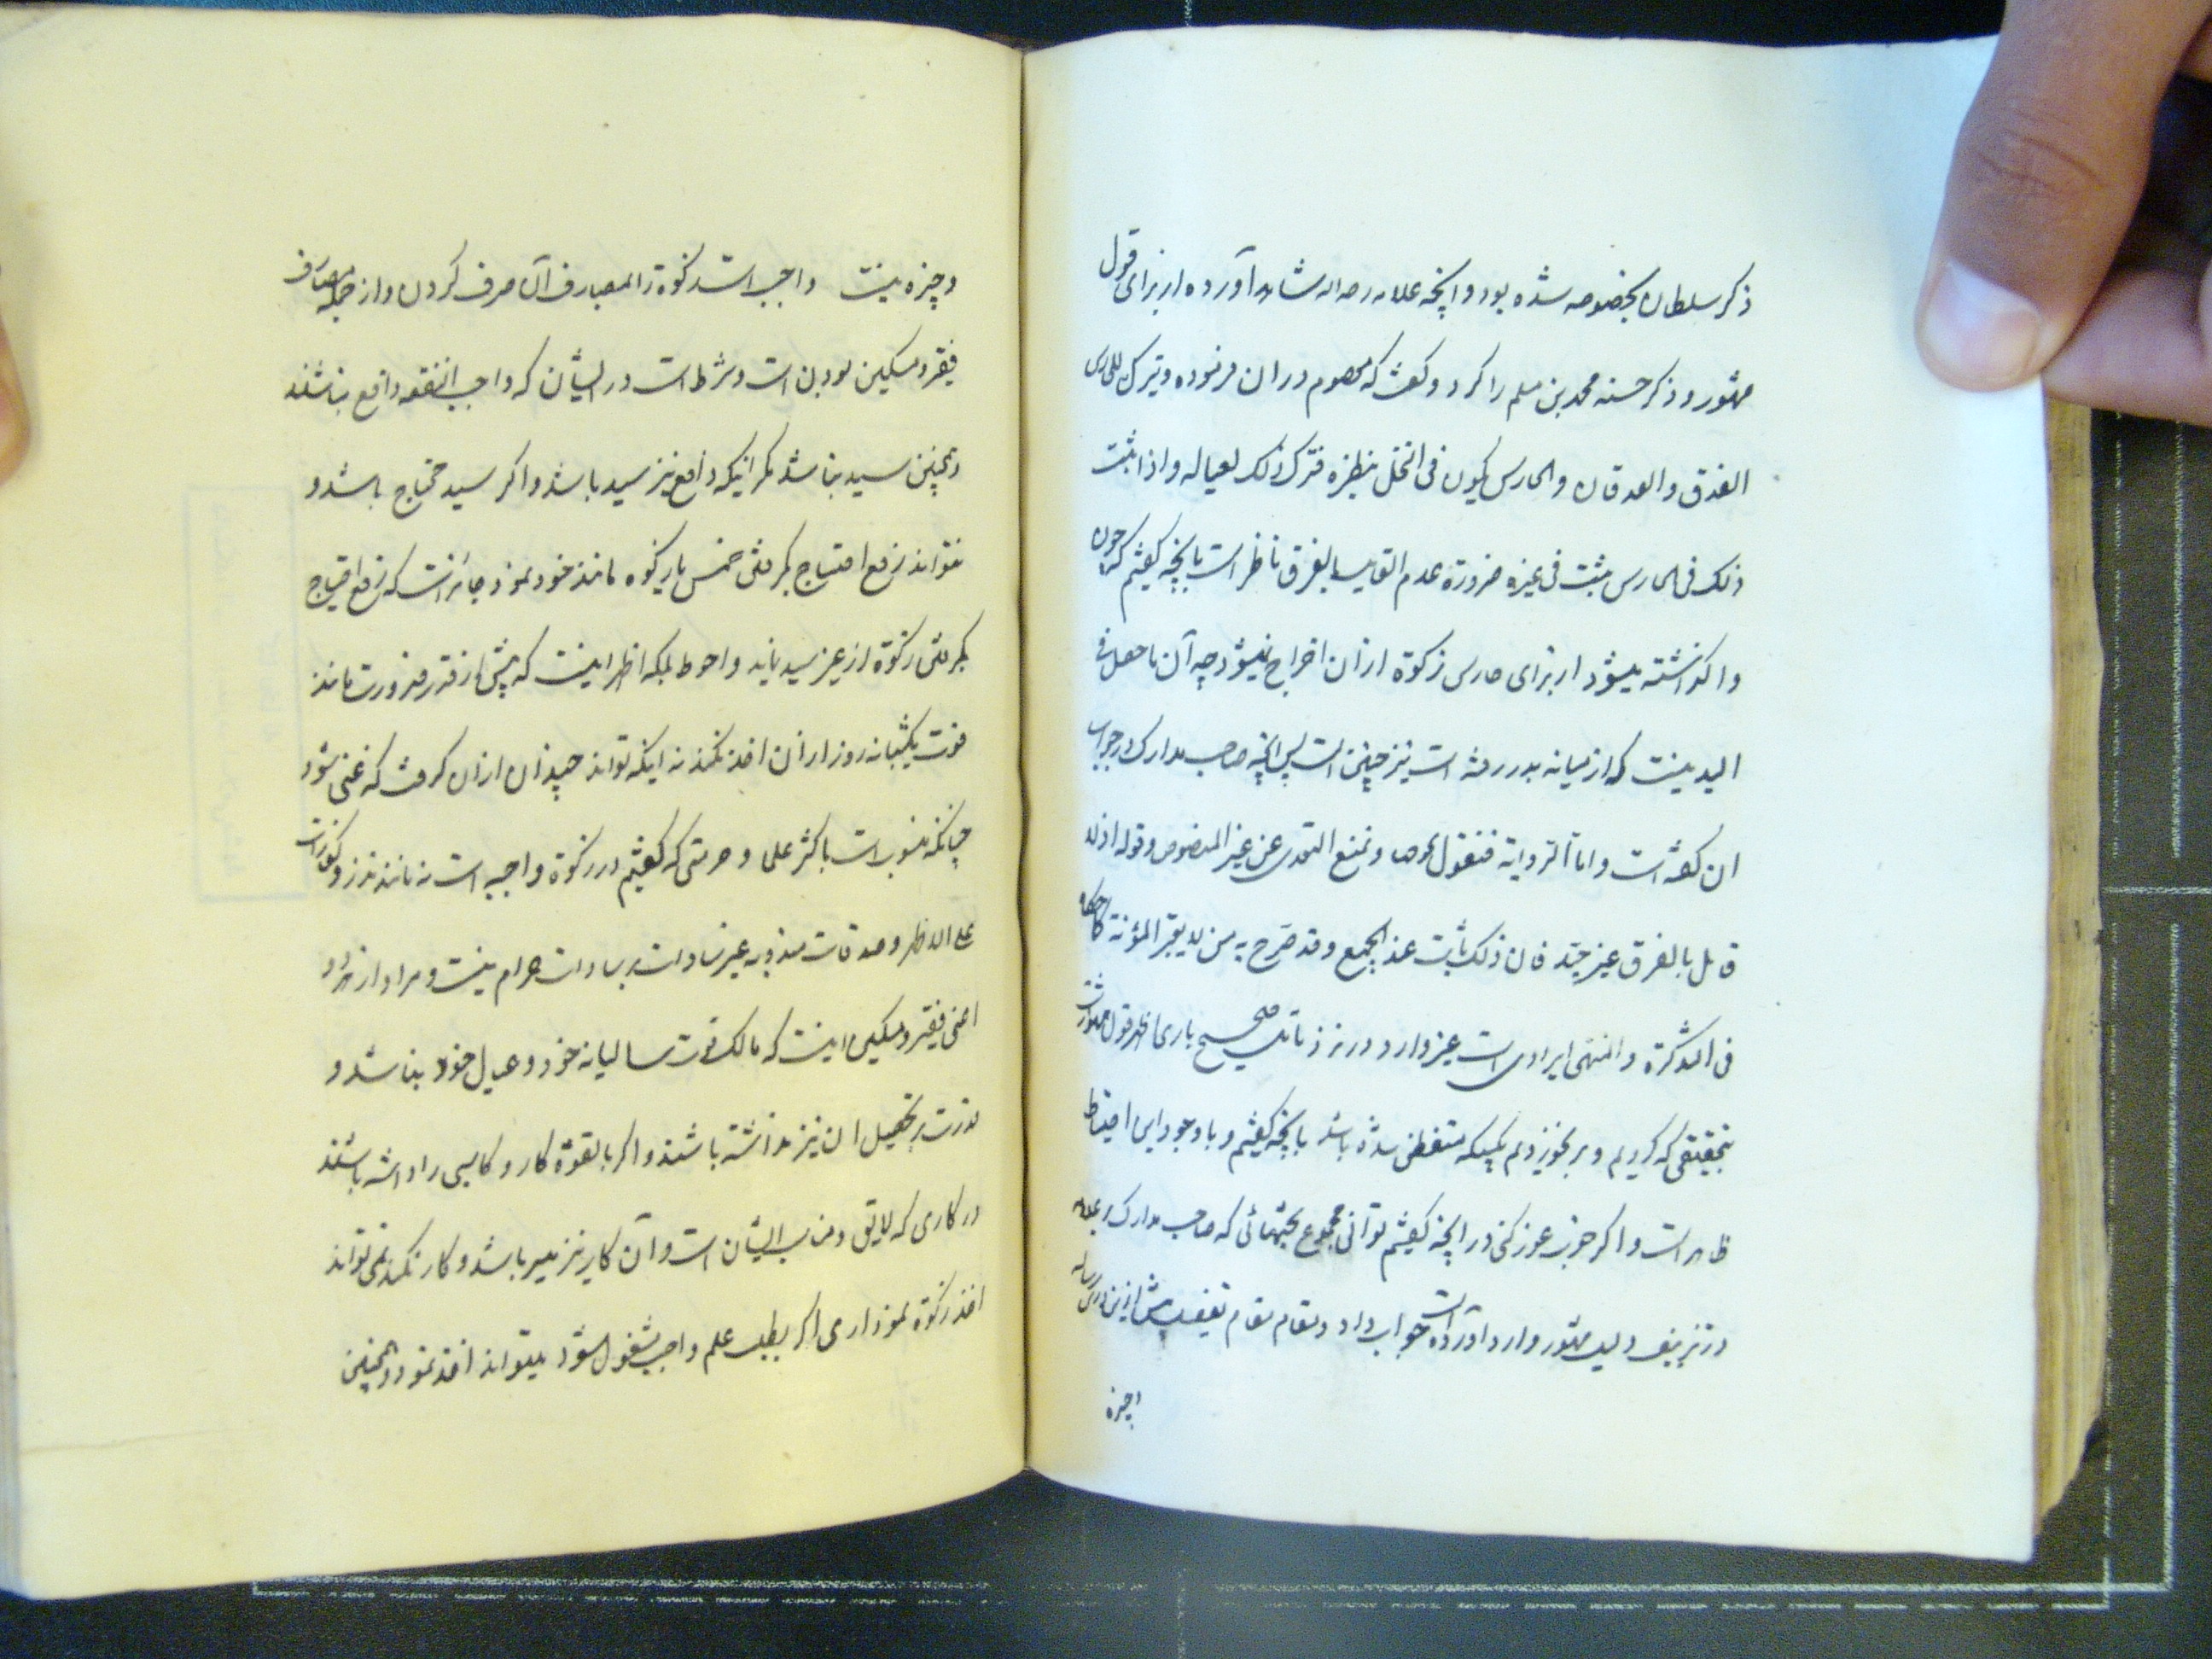 ذکر سلطان بخصوصه شده بود و انچه علامه رحمه الله شاهد آورده از برای قول
مشهور و ذکر حسنه محمد بن مسلم را کرد و گفت که معصوم در ان فرموده و یترک للحارس
العذق و العذقان و الحارس یکون فی النخل ینظره فترک ذلک لعیاله و اذا ثبت
ذلک فی الحارس ثبت فی غیره ضرورة عدم القایل بالفرق ناظر است بانچه گفتیم که چون
واگذاشته میشود از برای حارس زکوة از ان اخراج نمیشود چه آن ما حصل فی
الید نیست که از میانه بدر رفته است نیز چنین است پس انچه صاحب مدارک در جواب
ان گفته است و اما الروایة فنقول بموجبها و نمنع التعدی عن غیر المنصوص و قوله اذ لا
قائل بالفرق غیر جید فان ذلک ثابت عند الجمیع و قد صرح به من لا یعتبر المؤنة کما حکاه
فی التذکرة و المنتهی ایرادی است غیر وارد و در نزد ما تمسک صحیح باری اظهر قول مشهور است
بتحقیقی که کردیم و بر تجویز دوم بمسلکه متفطن شده باشد بانچه گفتیم و با وجود این احتیاط
ظاهر است و اگر خوب غور کنی در انچه گفتیم توانی مجموع بحثهائی که صاحب مدارک بر علامه
در تزییف دلیل مشهور وارد آورده است جواب داد و مقام مقام تفصیل بیش ازین در این رساله
وجیزه
وجیزه نیست واجبست زکوة را بمصارف آن صرف کردن و از جمله مصارف
فقیر و مسکین بودن است و شرط است در ایشان که واجب النفقه دافع نباشند
و همچنین سید نباشد مگر اینکه دافع نیز سید باشد و اگر سید محتاج باشد و
نتواند رفع احتیاج بگرفتن خمس یا زکوه مانند خود نمود جائز است که رفع احتیاج
بگرفتن زکوة از غیر سید نماید و احوط بلکه اظهر اینست که بیش از قدر ضرورت مانند
قوت یکشبانه روز از ان اخذ نکند نه اینکه تواند چندان از ان گرفت که غنی شود
چنانکه منسوب است باکثر علی و حرمتی که گفتیم در زکوة واجبه است نه مانند نذر و کفارات
علی الاظهر و صدقات مندوبه غیر سادات بر سادات حرام نیست و مراد از هر دو
اعنی فقیر و مسکین اینست که مالک قوت سالیانه خود و عیال خود نباشد و
قدرت بر تحصیل ان نیز نداشته باشند و اگر بالقوة کار و کاسبی را داشته باشند
در کاری که لایق و مناسب ایشان است و آن کار نیز میسر باشد و کار نکند نمی تواند
اخذ زکوة نمود اری اگر بطلب علم واجب مشغول شود میتواند اخذ نمود و همچنین